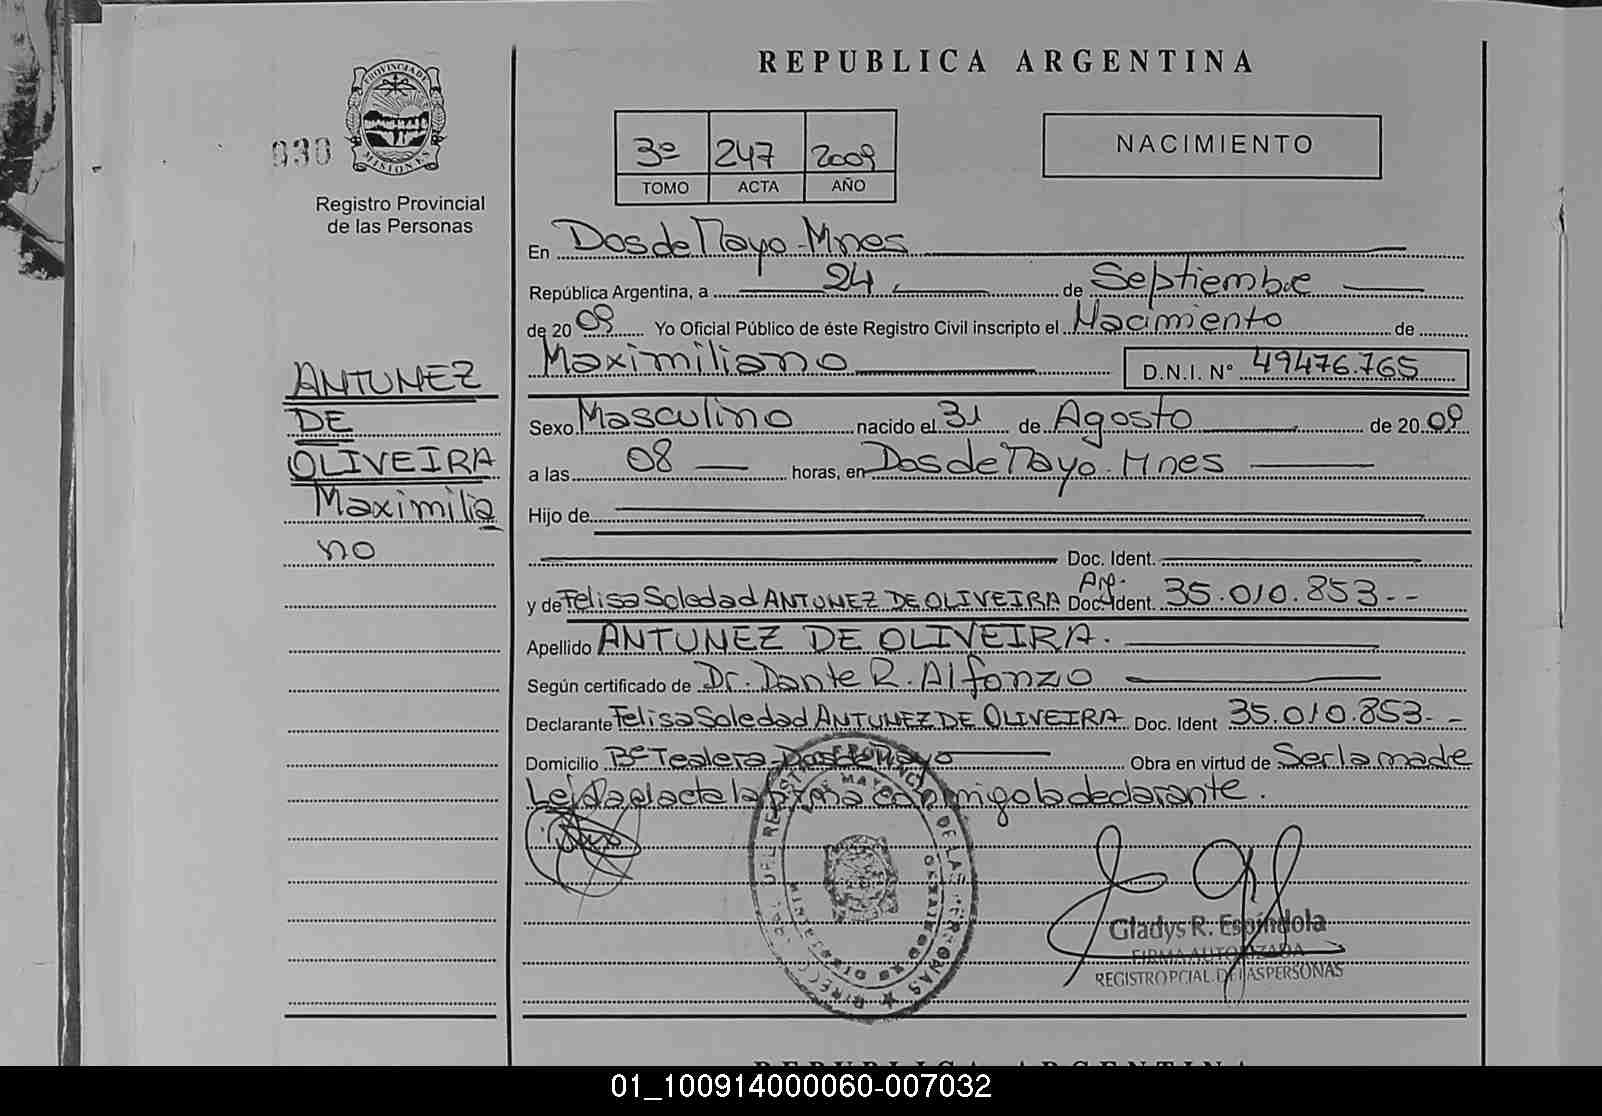 REPUBLICA ARGENTINA
PROVINCIA DE
MISIONES
030
Registro Provincial
de las Personas
3º 247 2009
TOMO ACTA AÑO
NACIMIENTO
En Dos de Mayo - Mnes
República Argentina, a 24 de Septiembre
de 2009 Yo Oficial Público de éste Registro Civil inscripto el Nacimiento de
Maximiliano D.N.I. N° 49476.765
Sexo Masculino nacido el 31 de Agosto de 2009
a las 08 horas, en Dos de Mayo. Mnes
Hijo de
Doc. Ident.
y de Felisa Soledad ANTUNEZ DE OLIVEIRA Doc. Ident. Arg. 35.010.853--
Apellido ANTUNEZ DE OLIVEIRA.
Según certificado de Dr. Dante R. Alfonzo
Declarante Felisa Soledad ANTUNEZ DE OLIVEIRA Doc. Ident 35.010.853--
Domicilio Bº Tealera - Dos de Mayo Obra en virtud de Ser la madre
Leída el acta la firma conmigo la declarante.
ANTUNEZ
DE
OLIVEIRA
Maximilia
no
Gladys R. Espíndola
FIRMA AUTORIZADA
REGISTRO PCIAL. DE LAS PERSONAS
REPUBLICA ARGENTINA
01_100914000060-007032